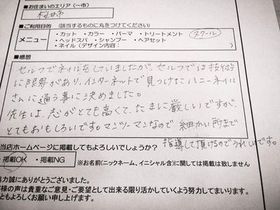 お住まいのエリア（〜市）
ご利用目的（該当するものに丸をつけてください）
メニュー
・カット ・カラー ・パーマ ・トリートメント
・ヘッドスパ ・シャンプー ・ヘアセット
・ネイル（デザイン内容 ）
スクール
■感想
セルフでネイルをしていましたが、セルフでは技術的
に限界があり、インターネットで見つけたハニーネイル
さんに通う事に決めました。
先生は、志がとても高くて、たまに厳しいですが、
とてもおもしろいです。マンツーマンなので 細かい所まで
指導して頂けるのでうれしいです。
当店ホームページに掲載してもよろしいでしょうか？
掲載OK ・ 掲載NG
※お名前（ニックネーム、イニシャル含）に関しては掲載は致しません
様の声は貴重なご意見・ご要望として出来る限り活かしていくよう努力してまいります。
とうございました。
もよろしくお願い申し上げます。